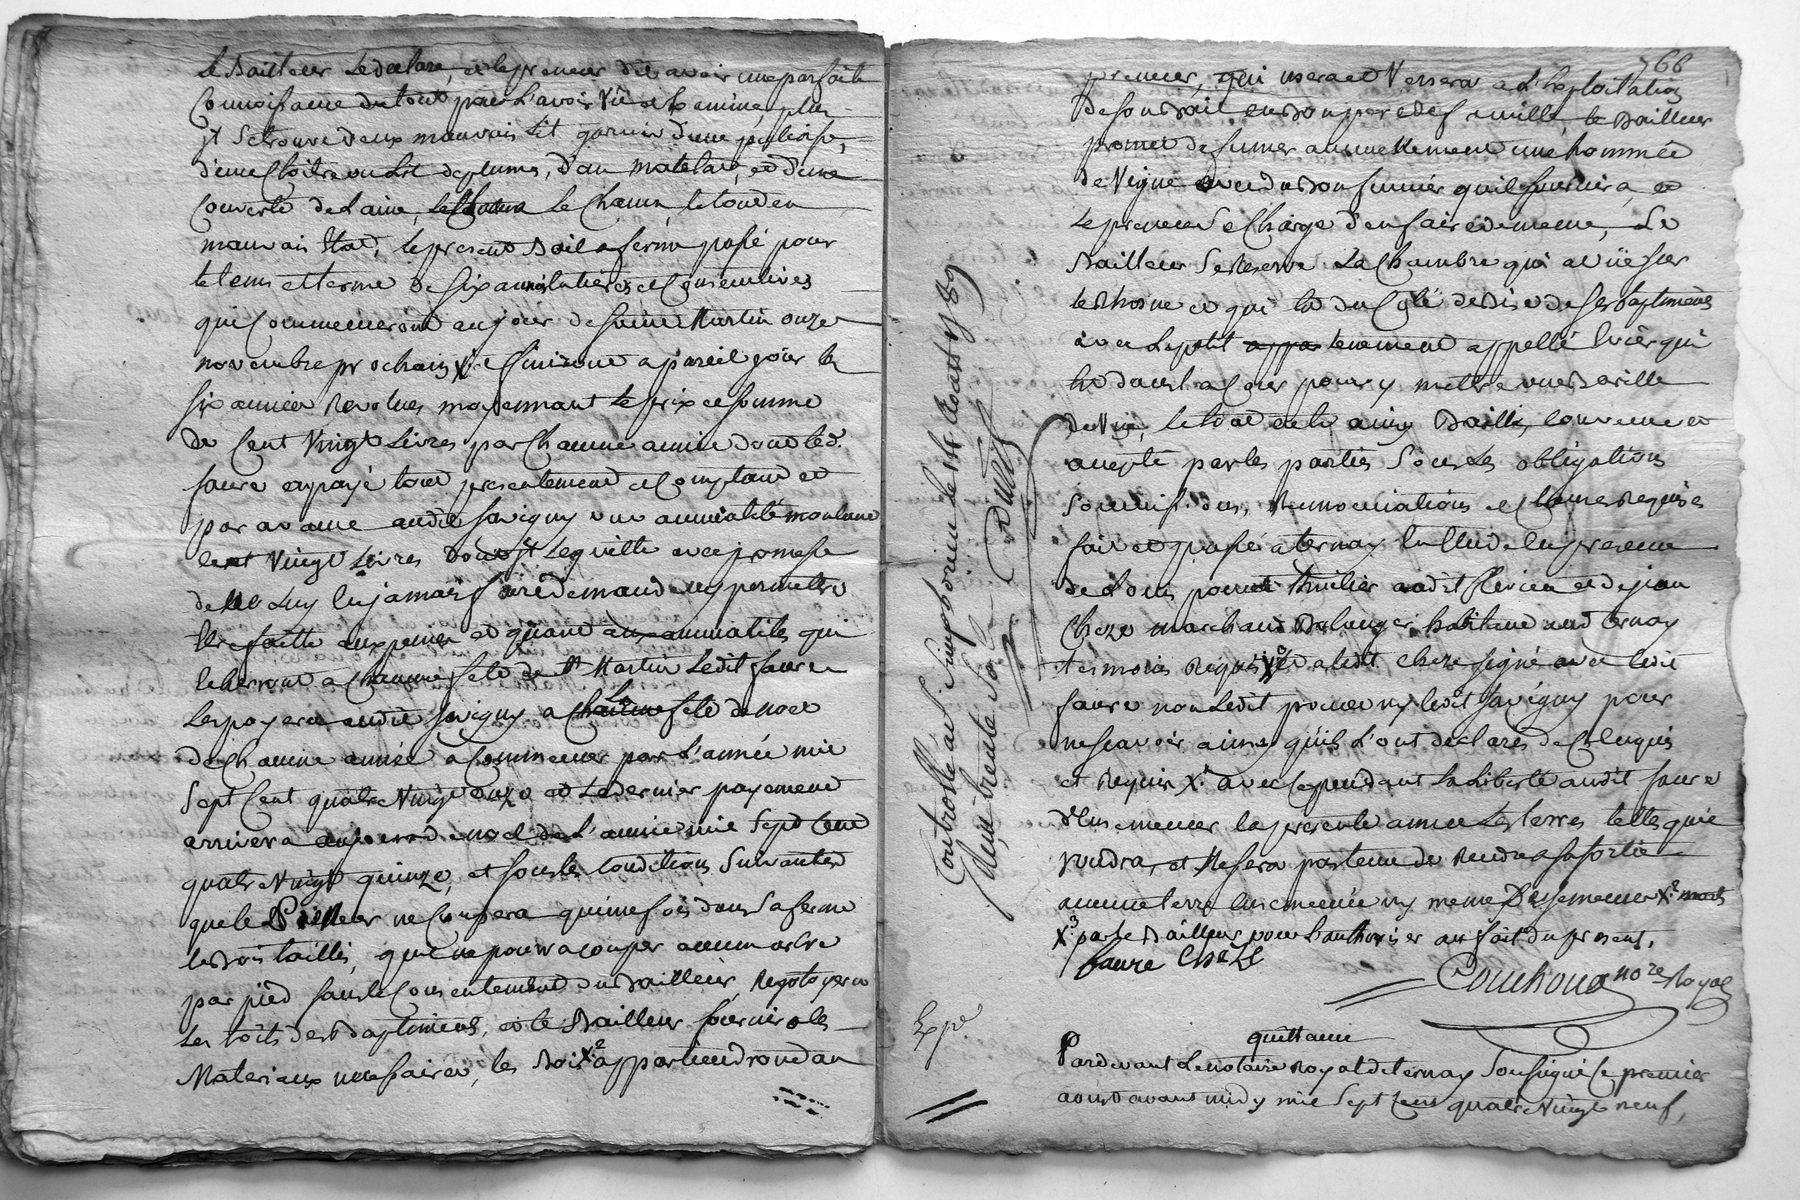 le Bailleur le declare, et le preneur dit avoir une parfaite
Connoissance du tout pour l'avoir Vû et Examiné, plus
il se trouve deux mauvais lit garnis d'une pailiasse,
d'une Coitre ou lit de plume, d'un matelat, et d'une
Couverte de Laine, le tout en
mauvais Etat, le present Bail a ferme passé pour
le tems et terme de six années entieres et Consecutives
qui Commenceront au jour de saint Martin onze
novembre prochain X. et finiront a pareil jour les
six années Revolues moyennant le prix et somme
de Cent Vingt Livres par Chacune année dont led.
faure en payé tout presentement et Comptant et
par avance audit savigny une annuité montant
Cent Vingt Livres dont il le quitte avec promesse
de ne luy en jamais faire demande ny permettre
Etre faitte aux peines et quant aux annuités qui
echerront a Chacune fete de st Martin Ledit faure
Les payera audit savigny a Chacune fete de noel
de Chacune année a Commencer par L'année mil
Sept Cent quatre Vingt onze et Le dernier payement
arrivera au jour de noel de L'année mil Sept Cent
quatre Vingt quinze, et sous les Conditions Suivantes
que le Preneur ne Coupera qu'une fois dans sa ferme
les Bois taillis, qu'il ne pourra couper aucun arbre
par pied sans le Consentement du Bailleur, Regotoyera
Les toits des Baptiments, et le Bailleur fournira les
Materiaux necessaires, les Bois X.2 appartiendront au
766
preneur, qui usera et Versera a L'Exploitation
de son Bail en Bon pere de famille, le Bailleur
promet de fumer annuellement une hommée
de Vigne avec du Bon fumier qu'il fournira, et
Le preneur se Charge d'en faire de meme, Le
Bailleur se Reserve La Chambre qui a vüe sur
le Rhosne et qui Est du Coté de Bise de ses Baptiments
avec Le petit tenement appellé qui
Est dans la Cour pour y mettre une
de Vin, le tout Et ainsy Baillé, Convenu et
accepté par les parties Sous Les obligations
Soumissions, Renonciations et Clauses Requises
fait et passé a ternay En l'Etude En presence
de Louis audit et de jean
Cheze marchand Boulanger habitant aud ternay
temoins Requis X. et a ledit Cheze signé avec ledit
faure non Ledit ny ledit savigny pour
ne scavoir ainsy qu'ils L'ont declarés de Ce Enquis
et Requis X. avec Cependant la Liberté audit faure
d'Ensemencer la presente année Les terres telle qu'il
voudra, et Ne sera pas tenu de Rendre a sa sortie
aucune terre Ensemencée ny meme D'Ensemencer X.2 morts
X.3 par le Bailleur pour L'authoriser au fait du present,
faure Cheze
Couchoud nore Royal
Controllé a St simphorien le 14 aoust 1789
Reçu trente sols
Expé
quittance
Pardevant Le notaire Royal de ternay Soussigné Ce premier
aoust avant midy mil Sept Cent quatre Vingt neuf,